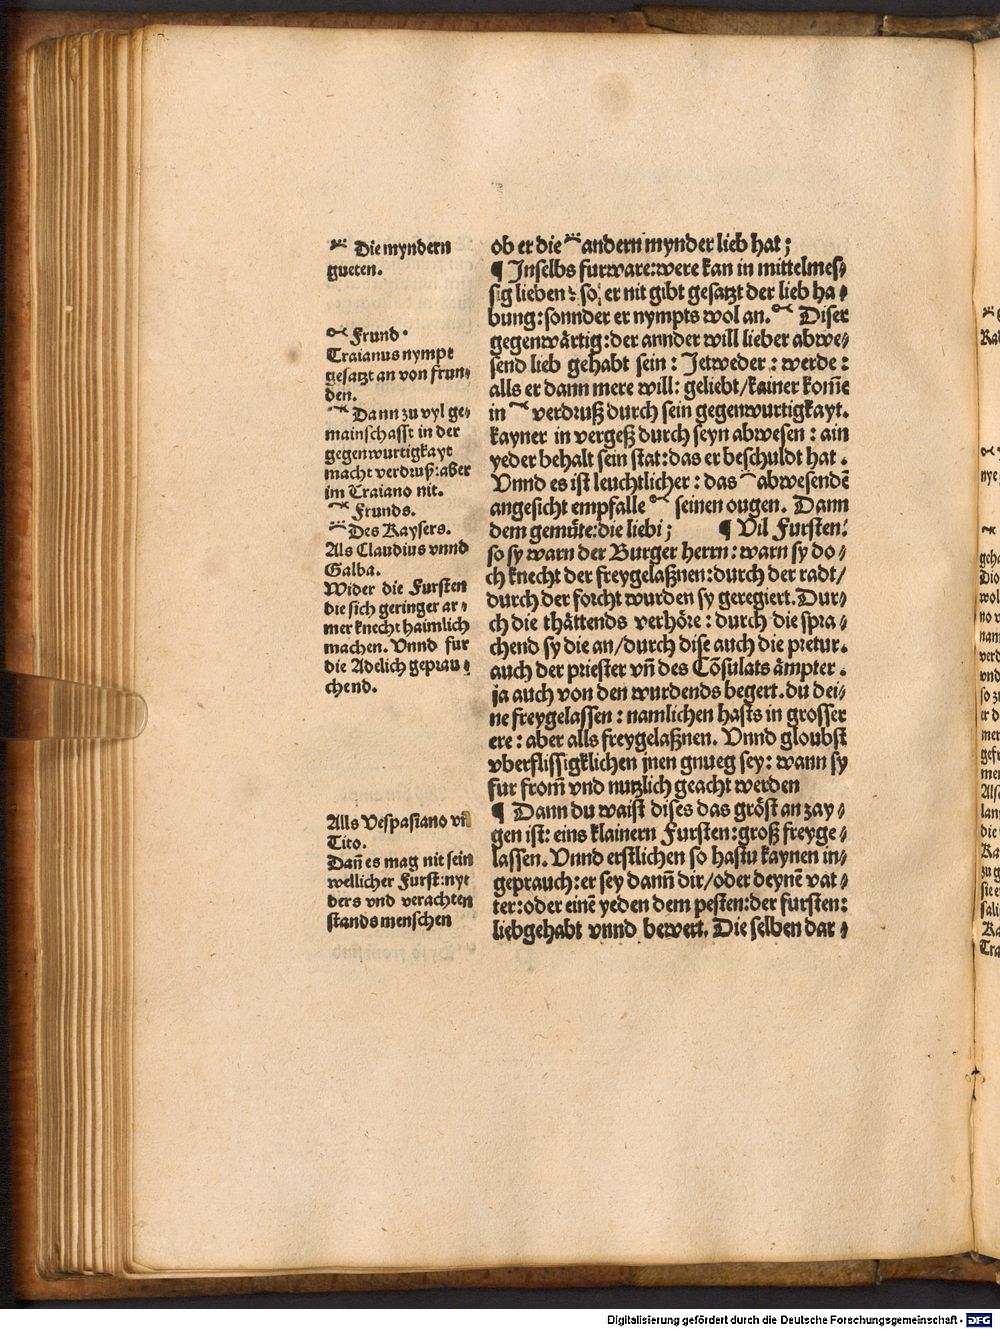 Die myndern
gueten.
Frund.
Traianus nympt
gesatzt an von frun⸗
den.
Dann zu vyl ge⸗
mainschafft in der
gegenwurtigkayt
macht verdruß: aber
im Traiano nit.
Frunds.
Des Kaysers.
Als Claudius vnnd
Galba.
Wider die Fursten
die sich geringer ar⸗
mer knecht haimlich
machen. Vnnd fur
die Adelich geprau⸗
chend.
Alls Vespasiano vñ
Tito.
Dañ es mag nit sein
wellicher Furst: nyt
ders vnd verachten
stands menschen
ob er die andern mynder lieb hat;
¶ Inselbs furware: were kan in mittelmes⸗
sig lieben: so, er nit gibt gesatzt der lieb ha⸗
bung: sonnder er nympts wol an. Diser
gegenwärtig: der annder will lieber abwe⸗
send lieb gehabt sein: Jetweder: werde:
alls er dann mere will: geliebt/kainer kom̃e
in verdruß durch sein gegenwurtigkayt.
kayner in vergeß durch seyn abwesen: ain
yeder behalt sein stat: das er beschuldt hat.
Vnnd es ist leuchtlicher: das abwesendẽ
angesicht empfalle seinen ougen. Dann
dem gemüte: die liebi; ¶ Vil Fursten:
so sy warn der Burger herrn: warn sy do⸗
ch knecht der freygelaßnen: durch der radt/
durch der forcht wurden sy geregiert. Dur⸗
ch die thättends verhöre: durch die spra⸗
chend sy die an/durch dise auch die pretur.
auch der priester vñ des Cõsulats ämpter.
ja auch von den wurdends begert. du dei⸗
ne freygelassen: namlichen hasts in grosser
ere: aber alls freygelaßnen. Vnnd gloubst
vberflissigklichen jnen gnueg sey: wann sy
fur from̃ vnd nutzlich geacht werden
¶ Dann du waist dises das gröst an zay⸗
gen ist: eins klainern Fursten: groß freyge⸗
lassen. Vnnd erstlichen so hastu kaynen in⸗
geprauch: er sey dann̄ dir/oder deynẽ vat⸗
ter: oder einẽ yeden dem pesten: der fursten:
liebgehabt vnnd bewert. Die selben dar⸗
Digitalisierung gefördert durch die Deutsche Forschungsgemeinschaft - DFG